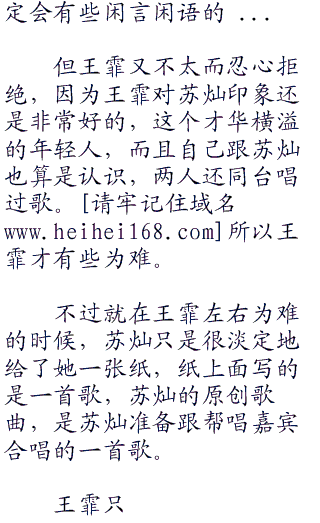 定会有些闲言闲语的 ...
但王霏又不太而忍心拒
绝，因为王霏对苏灿印象还
是非常好的，这个才华横溢
的年轻人，而且自己跟苏灿
也算是认识，两人还同台唱
过歌。[请牢记住域名
www.heihei168.com]所以王
霏才有些为难。
不过就在王霏左右为难
的时候，苏灿只是很淡定地
给了她一张纸，纸上面写的
是一首歌，苏灿的原创歌
曲，是苏灿准备跟帮唱嘉宾
合唱的一首歌。
王霏只